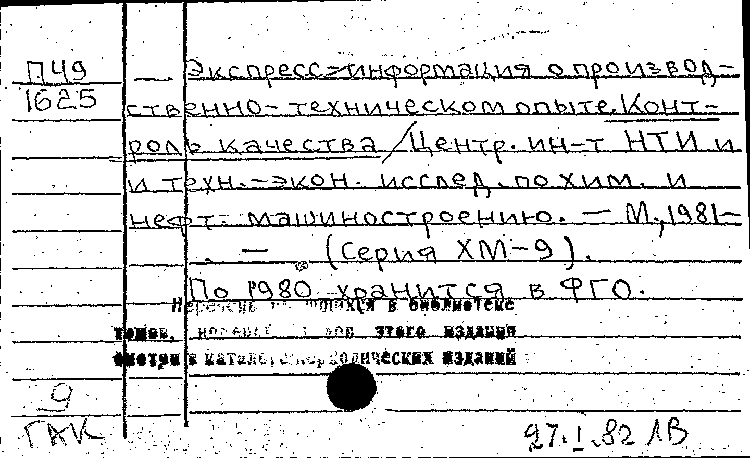 П49
1625
— Экспресс-информация о производ-
ственно-техническом опыте. Конт-
роль качества / Центр. ин-т НТИ и
и техн.-экон. исслед. по хим. и
нефт. машиностроению. — М., 1981-
. — (Серия ХМ-9).
По 1980 хранится в ФГО.
Перечень имеющихся в библиотеке
томов, номеров этого издания
смотри в каталоге периодических изданий
9
ГАК
27.I.82 ЛВ